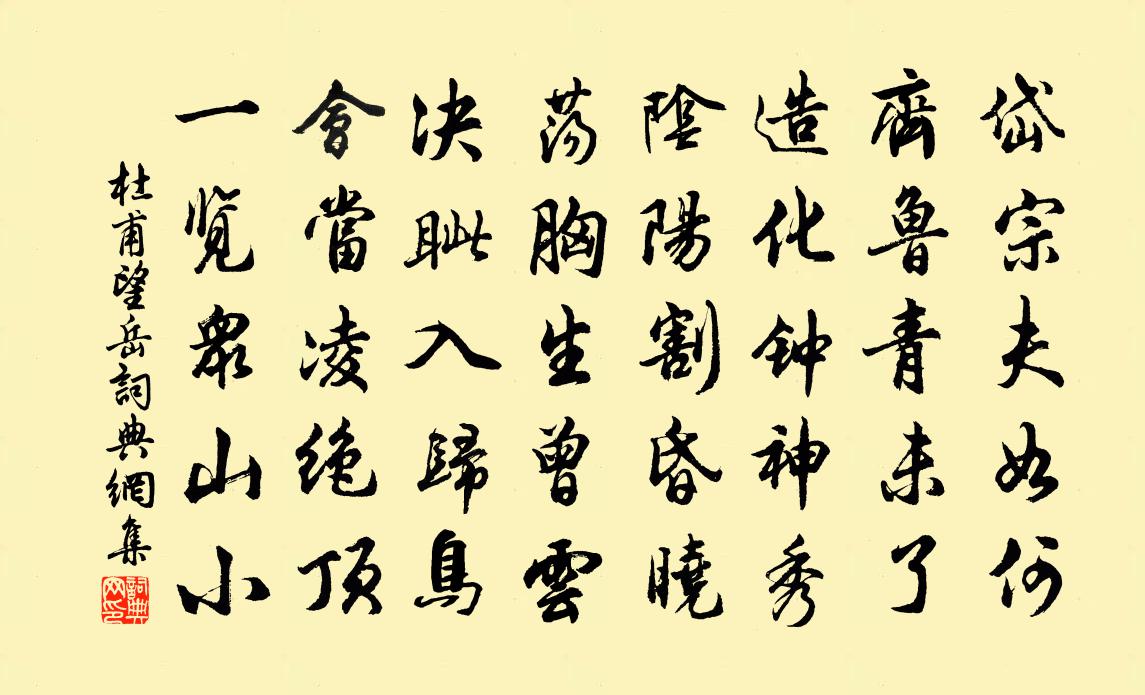 岱宗夫如何
齊魯青未了
造化钟神秀
陰陽割昏曉
荡胸生曾雲
決眦入歸鳥
會當凌绝顶
一览眾山小
杜甫望岳詞典網集
詞典网印